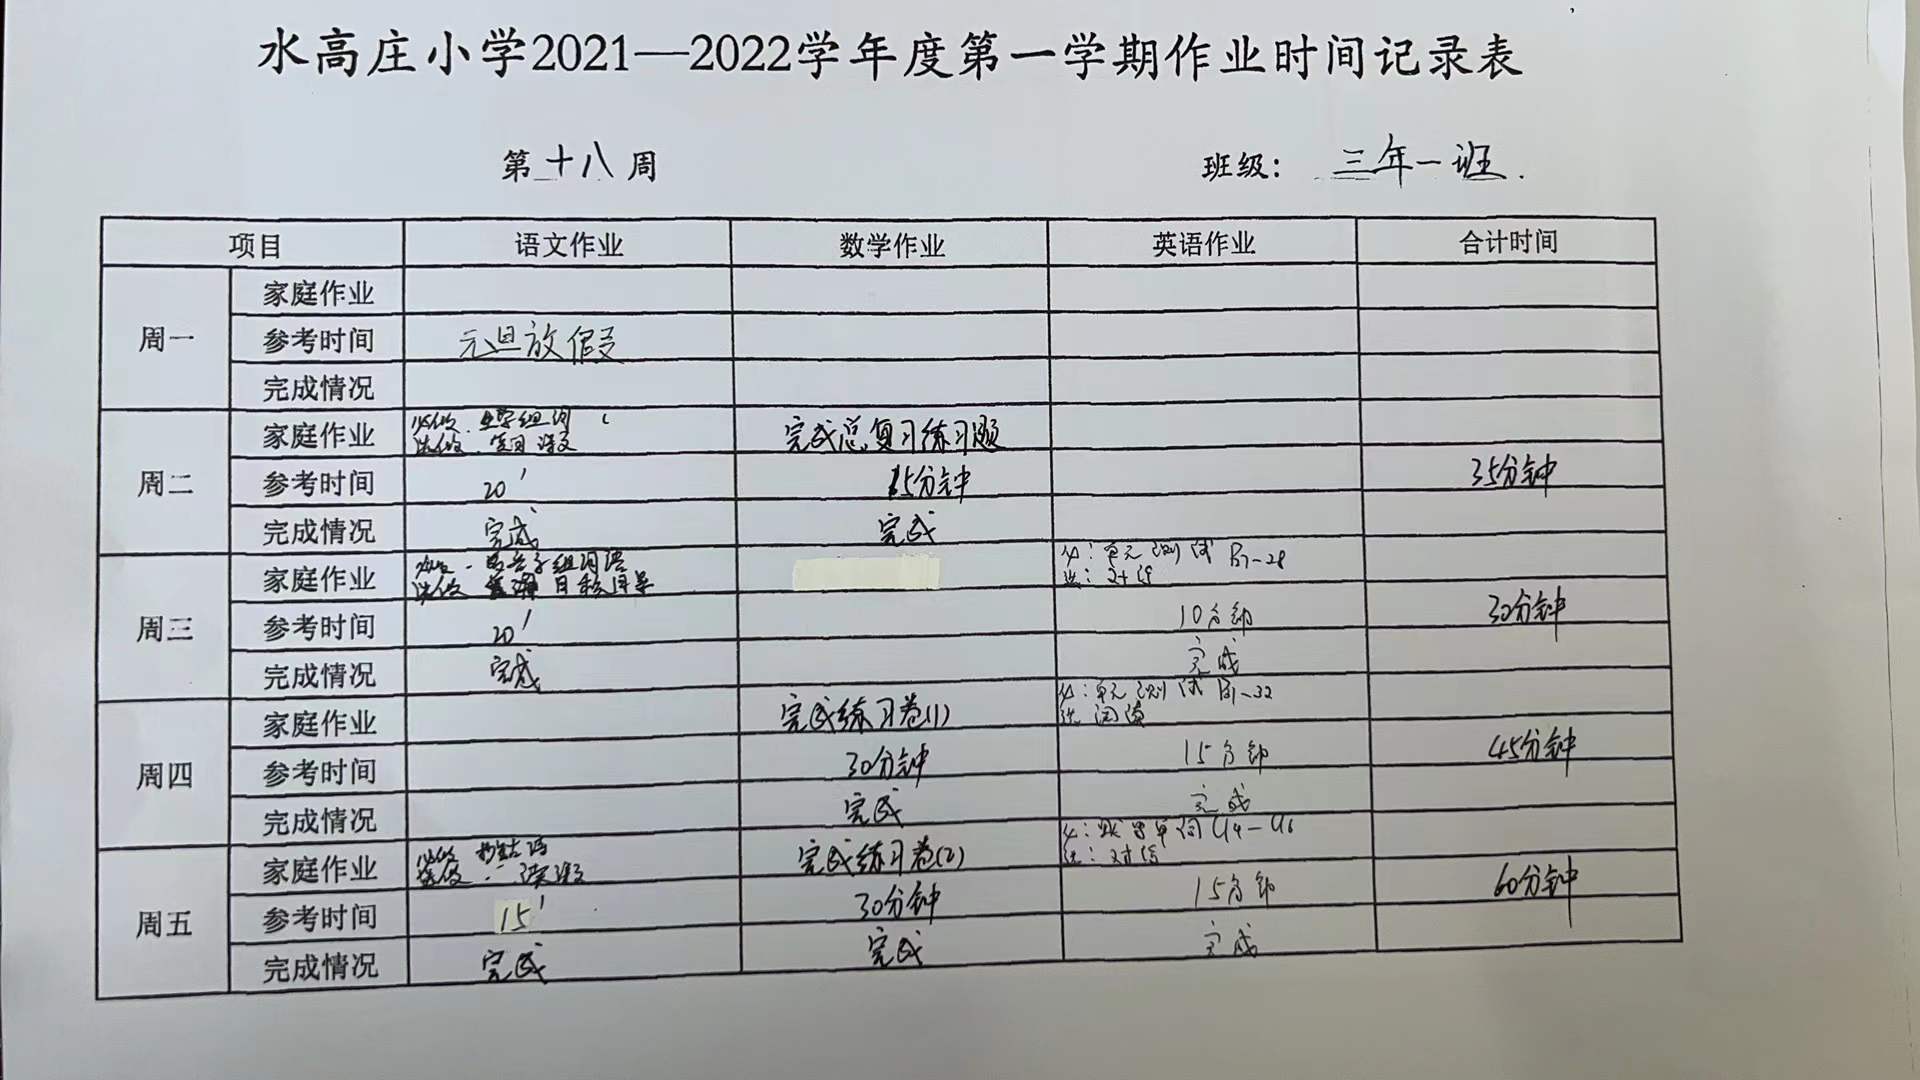 水高庄小学2021—2022学年度第一学期作业时间记录表
第 十八 周 班级： 三年一班.
项目 语文作业 数学作业 英语作业 合计时间
周一
家庭作业
参考时间 元旦放假
完成情况
周二
家庭作业 必做. 生字组词 完成总复习练习题
选做. 复习课文
参考时间 20' 15分钟 35分钟
完成情况 完成 完成
周三
家庭作业 组词语 必：单元测试 P27-28
选做 日积月累 选：对话
参考时间 20' 10分钟 30分钟
完成情况 完成 完成
周四
家庭作业 完成练习卷(1) 必：单元测试 P31-32
选 阅读
参考时间 30分钟 15分钟 45分钟
完成情况 完成 完成
周五
家庭作业 必做 完成练习卷(2) 必： 单词 U4-U6
选做 选：对话
参考时间 15' 30分钟 15分钟 60分钟
完成情况 完成 完成 完成